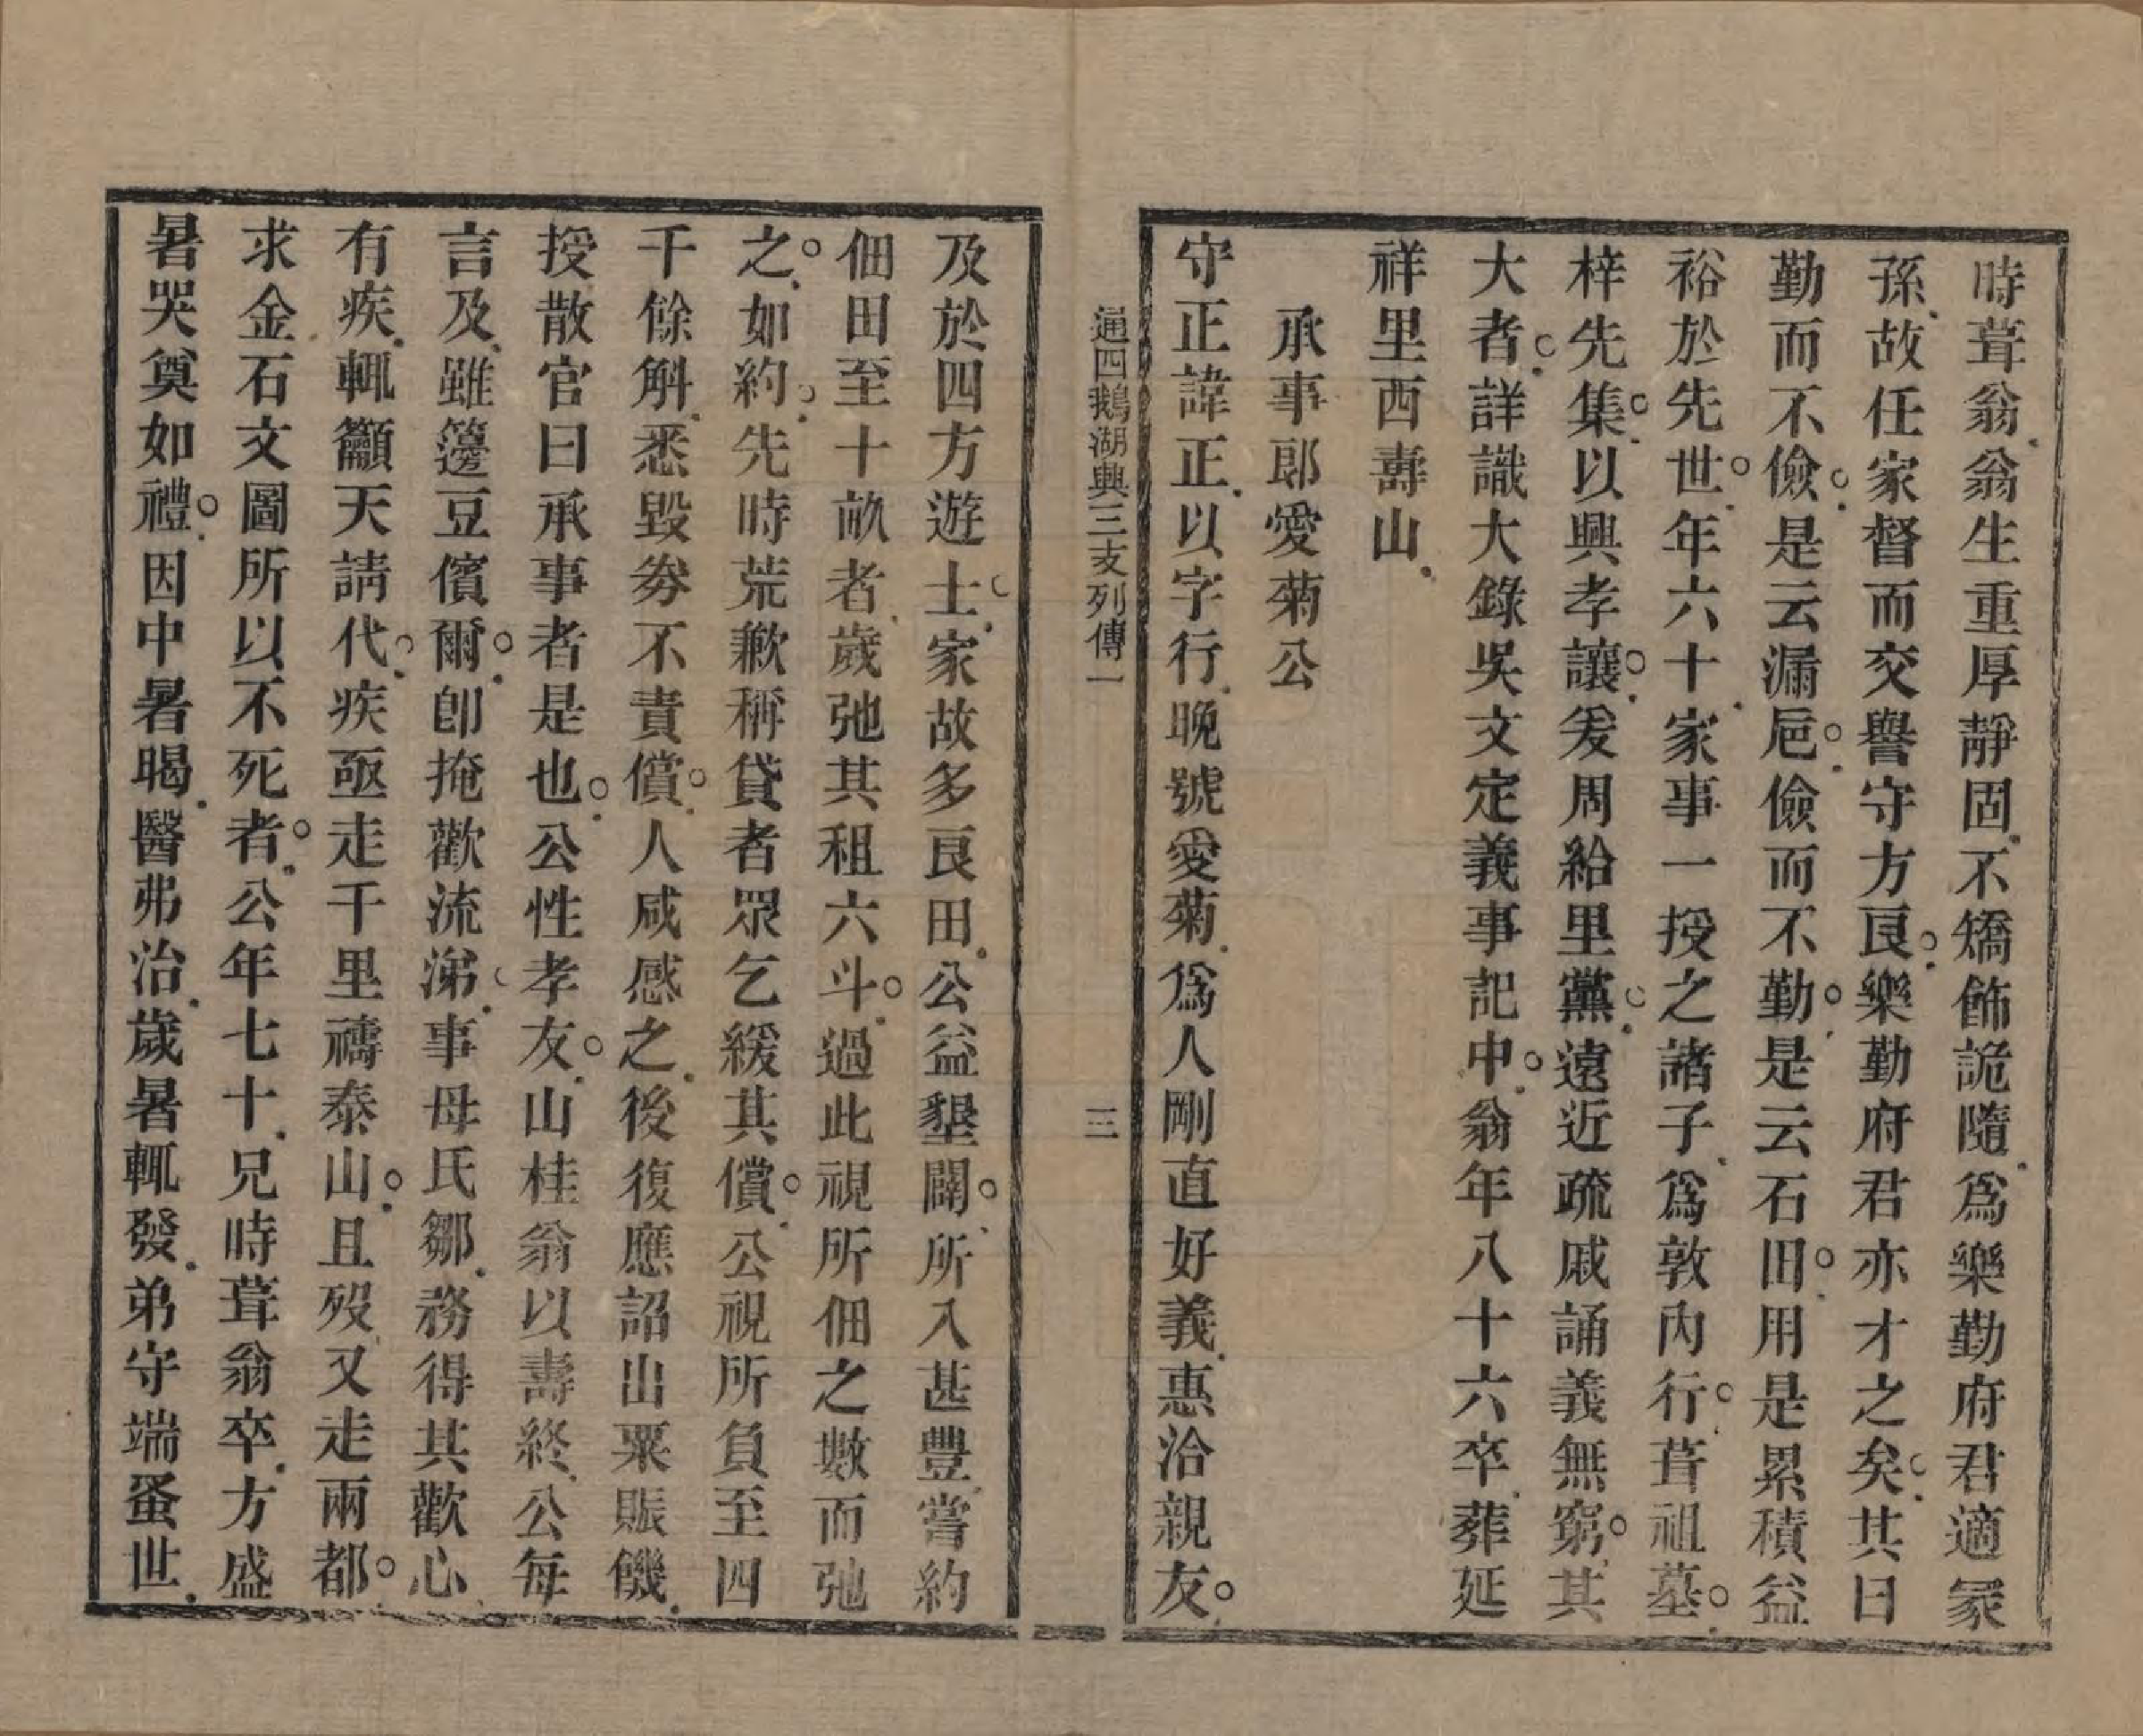 時葺翁翁生重厚靜固不矯飾詭隨爲樂勤府君適冡
孫故任家督而交譽守方良樂勤府君亦才之矣其曰
勤而不儉是云漏巵儉而不勤是云石田用是累積益
裕於先世年六十家事一授之諸子爲敦內行葺祖墓
梓先集以興孝讓爰周給里黨遠近疏戚誦義無窮其
大者詳識大錄吳文定義事記中翁年八十六卒葬延
祥里西壽山
承事郎愛菊公
守正諱正以字行晚號愛菊爲人剛直好義惠洽親友
通四鵝湖興三支列傳一
三
及於四方遊士家故多良田公益墾闢所入甚豐嘗約
佃田至十畝者歲弛其租六斗過此視所佃之數而弛
之如約先時荒歉稱貸者眾乞緩其償公視所負至四
千餘斛悉毀劵不責償人咸感之後復應詔出粟賑饑
授散官曰承事者是也公性孝友山桂翁以壽終公每
言及雖籩豆儐爾卽掩歡流涕事母氏鄒務得其歡心
有疾輒籲天請代疾亟走千里禱泰山且歿又走兩都
求金石文圖所以不死者公年七十兄時葺翁卒方盛
暑哭奠如禮因中暑暍醫弗治歲暑輒發弟守端蚤世